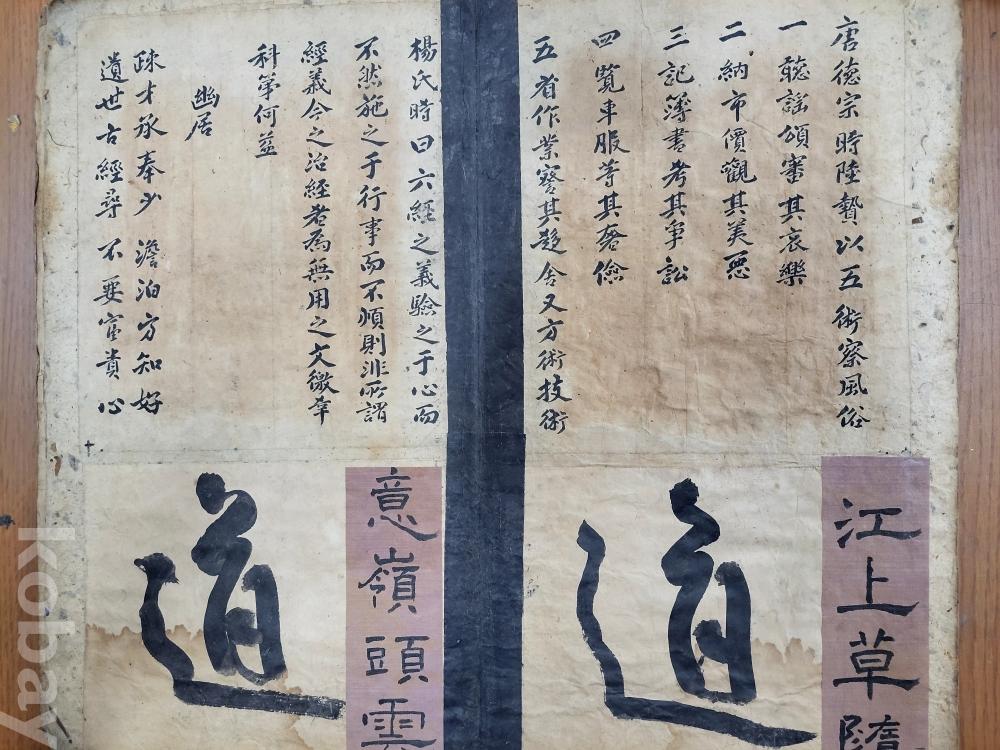 唐德宗時陸贄以五術察風俗
一聽謠頌審其哀樂
二納市價觀其美惡
三記簿書考其爭訟
四覽車服等其奢儉
五省作業察其趍舍又方術技術
江上草隨
道
楊氏時曰六經之義驗之于心而
不然施之于行事而不順則非所謂
經義今之治經者為無用之文徼幸
科第何益
幽居
疎才承奉少 澹泊方知好
遺世古經尋 不要富貴心
意嶺頭雲
道
kobay